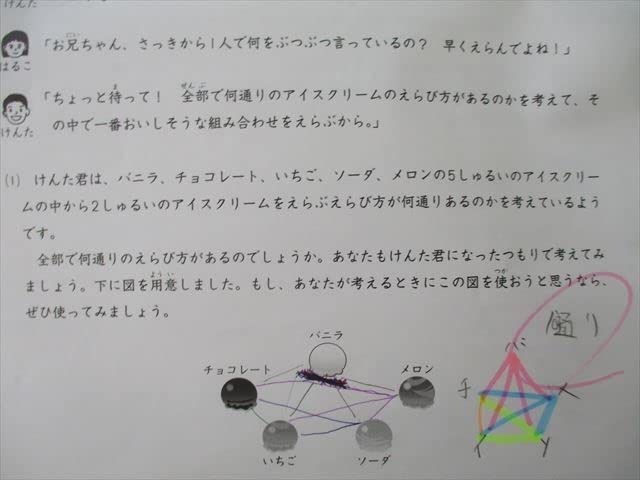 けんた
「お兄ちゃん、さっきから1人で何をぶつぶつ言っているの？　早くえらんでよね！」
はるこ
「ちょっと待って！　全部で何通りのアイスクリームのえらび方があるのかを考えて、そ
の中で一番おいしそうな組み合わせをえらぶから。」
けんた
(1)　けんた君は、バニラ、チョコレート、いちご、ソーダ、メロンの5しゅるいのアイスクリー
ムの中から2しゅるいのアイスクリームをえらぶえらび方が何通りあるのかを考えているよう
です。
全部で何通りのえらび方があるのでしょうか。あなたもけんた君になったつもりで考えてみ
ましょう。下に図を用意しました。もし、あなたが考えるときにこの図を使おうと思うなら、
ぜひ使ってみましょう。
バニラ
チョコレート
メロン
いちご
ソーダ
バ
チ
メ
イ
ソ